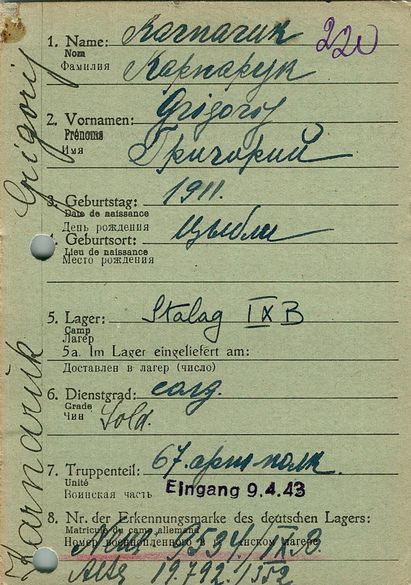 220
1. Name: Karnaruk
Nom
Фамилия Карнарук
2. Vornamen: Grigorij
Prénoms
Имя Григорий
3. Geburtstag: 1911.
Date de naissance
День рождения
4. Geburtsort: Цыбли
Lieu de naissance
Место рождения
5. Lager: Stalag IX B
Camp
Лагерь
5a. Im Lager eingeliefert am:
Доставлен в лагерь (число)
6. Dienstgrad: солд.
Grade
Чин Sold.
7. Truppenteil: 67. арт полк.
Unité
Воинская часть Eingang 9.4.43
8. Nr. der Erkennungsmarke des deutschen Lagers:
Matricule du camp allemand
Номер военнопленного в лагере
19.792/352
Karnaruk Grigorij